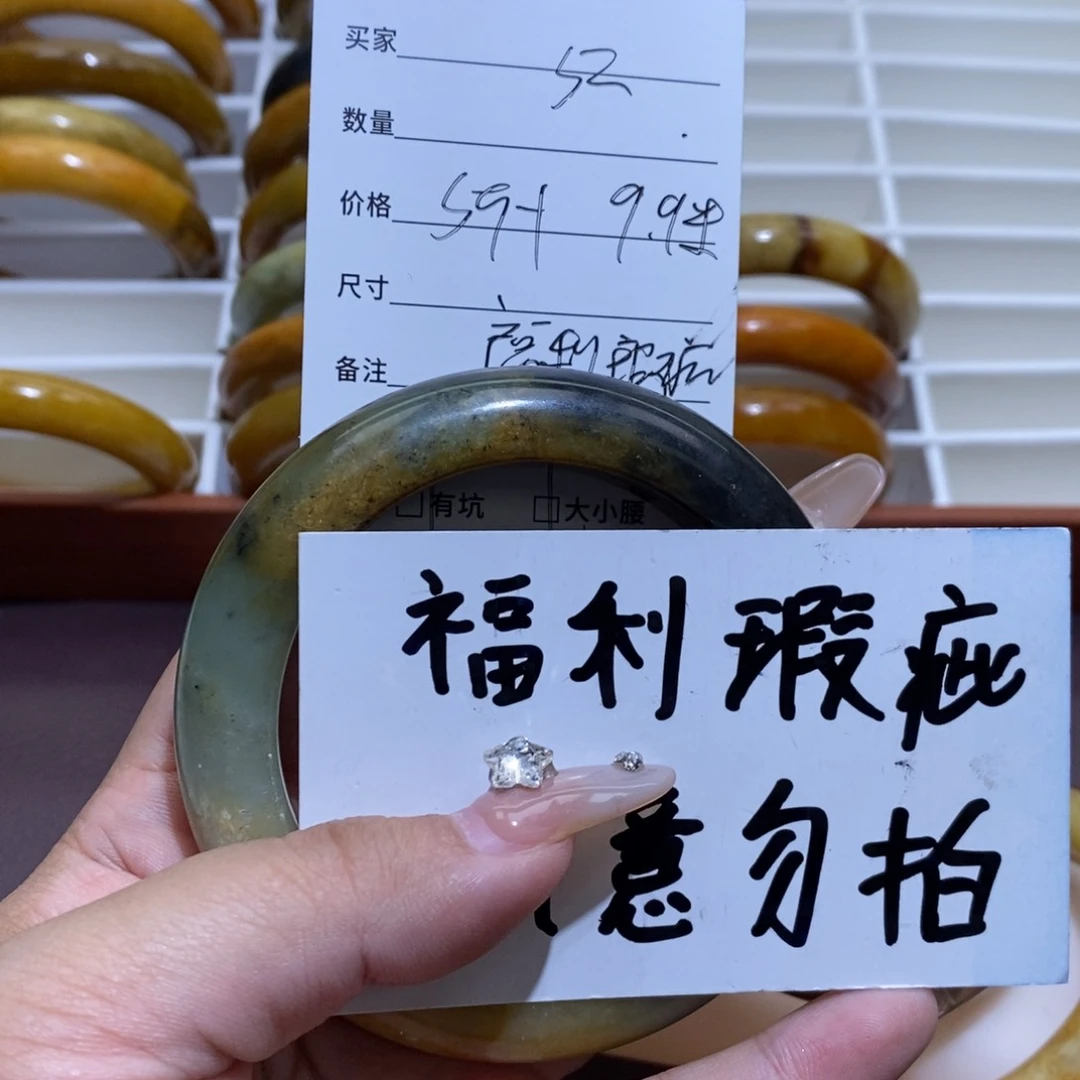 买家 52
数量
价格 591 9.9
尺寸
备注 福利瑕疵
有坑 大小腰
福利瑕疵
意勿拍